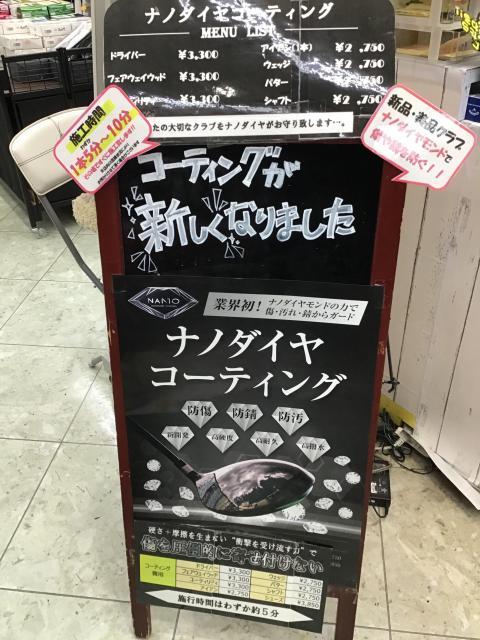 ナノダイヤコーティング
MENU LIST
ドライバー ¥3,300
アイアン(1本) ¥2,750
フェアウェイウッド ¥3,300
ウェッジ ¥2,750
¥3,300
パター ¥2,750
シャフト ¥2,750
たの大切なクラブをナノダイヤがお守り致します…。
施工時間
1本5分~10分
新品・美品クラブ
ナノダイヤモンドで
コーティングが
新しくなりました
NANO
業界初!
ナノダイヤモンドの力で
傷・汚れ・錆からガード
ナノダイヤ
コーティング
防傷 防錆 防汚
新開発 高硬度 高耐久 高撥水
硬さ+摩擦を生まない"衝撃を受け流す力"で
傷を圧倒的に寄せ付けない
コーティング
費用
ドライバー ¥3,300
フェアウェイウッド ¥3,300
ユーティリティ ¥3,300
アイアン ¥2,750
ウェッジ ¥2,750
パター ¥2,750
シャフト ¥2,750
シューズ ¥3,850
施行時間はわずか約5分